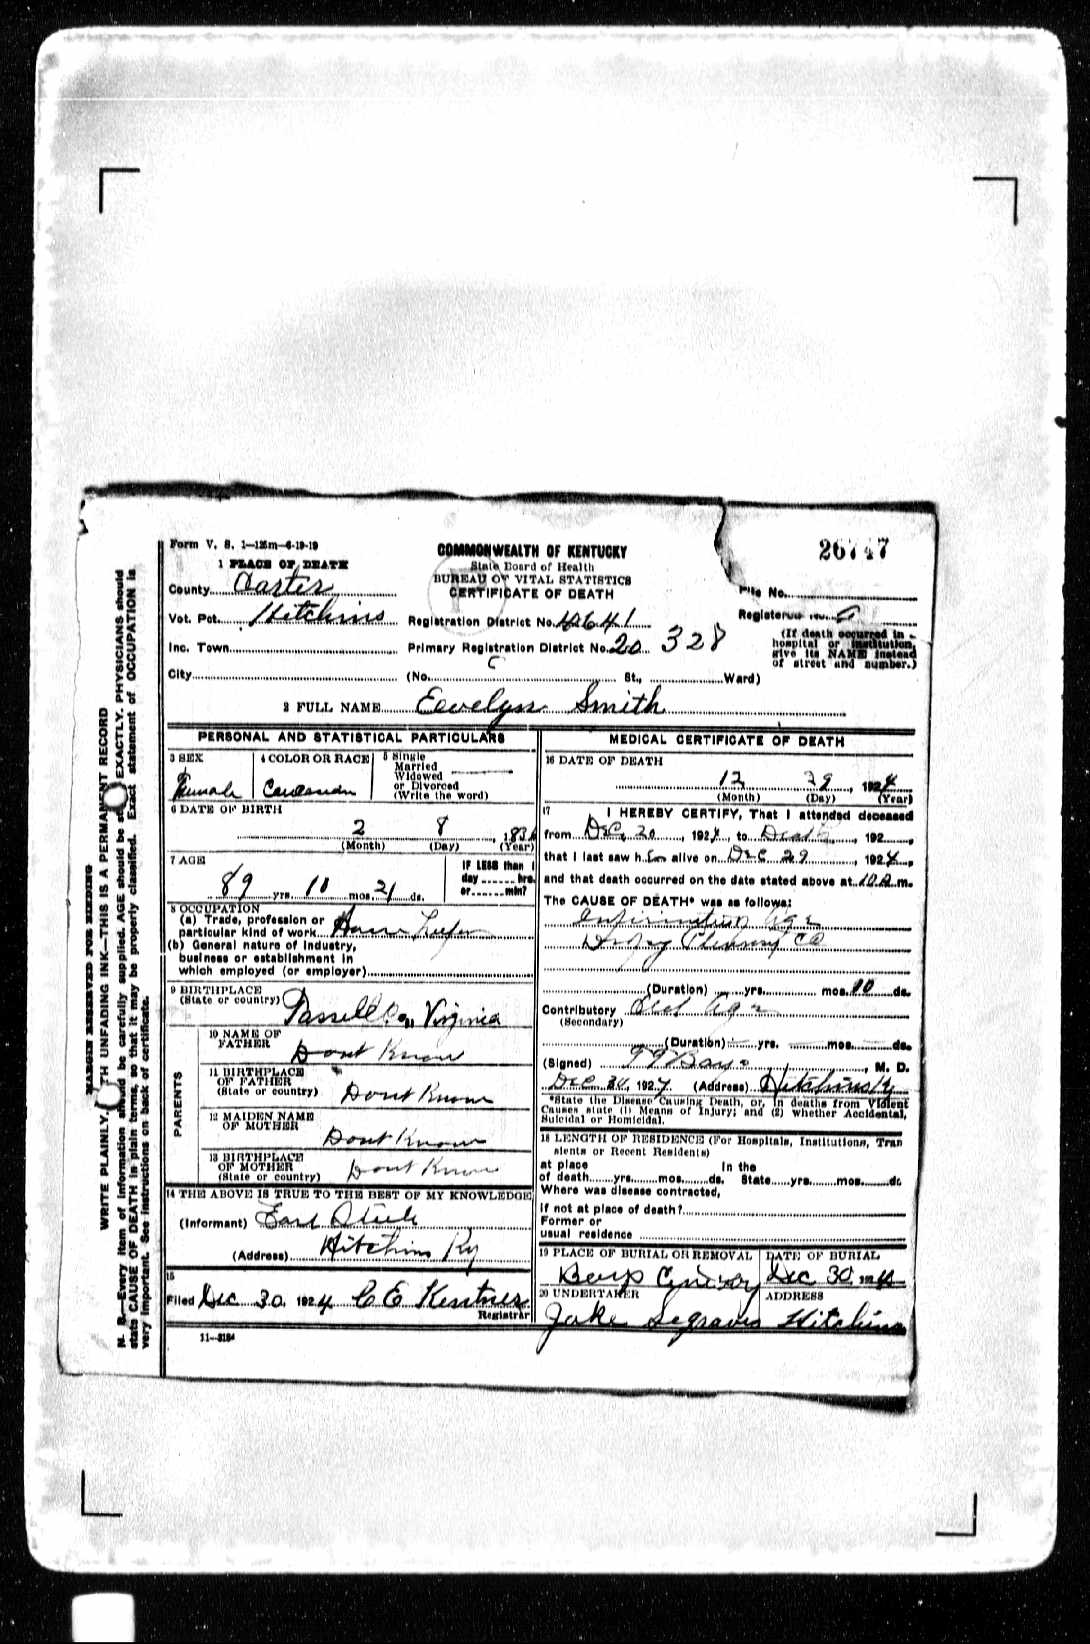 Form V. S. 1—125m—6-19-19
26747
1 PLACE OF DEATH
COMMONWEALTH OF KENTUCKY
State Board of Health
BUREAU OF VITAL STATISTICS
CERTIFICATE OF DEATH
County Carter
File No.
Vot. Pct. Hitchins
Registration District No. 4641
Registered No. 9
Inc. Town
Primary Registration District No. 20 328
(If death occurred in
hospital or institution,
give its NAME instead
of street and number.)
City (No. St., Ward)
2 FULL NAME Eevelyn Smith
PERSONAL AND STATISTICAL PARTICULARS
3 SEX
Female
4 COLOR OR RACE
Caucasian
5 Single
Married
Widowed
or Divorced
(Write the word)
6 DATE OF BIRTH
2 8
(Month) (Day) (Year)
7 AGE
89 yrs. 10 mos. 21 ds.
IF LESS than 1
day hrs.
or min?
8 OCCUPATION
(a) Trade, profession or
particular kind of work House Keeper
(b) General nature of industry,
business or establishment in
which employed (or employer)
9 BIRTHPLACE
(State or country) Co Virginia
PARENTS
10 NAME OF
FATHER Dont Know
11 BIRTHPLACE
OF FATHER
(State or country) Dont Know
12 MAIDEN NAME
OF MOTHER Dont Know
13 BIRTHPLACE
OF MOTHER
(State or country) Dont Know
14 THE ABOVE IS TRUE TO THE BEST OF MY KNOWLEDGE
(Informant) Earl Steele
(Address) Hitchins Ky
15
Filed Dec 30, 1924 C E Kestner
Registrar
11—3184
MEDICAL CERTIFICATE OF DEATH
16 DATE OF DEATH
12 29, 1924
(Month) (Day) (Year)
17 I HEREBY CERTIFY, That I attended deceased
from Dec, 20, 1924, to Death, 192
that I last saw h alive on Dec 29, 1924,
and that death occurred on the date stated above at 10 m.
The CAUSE OF DEATH* was as follows:
(Duration) yrs. mos. 10 ds.
Contributory Old Age
(Secondary)
(Duration) yrs. mos. ds.
(Signed) M. D.
Dec 30, 1924 (Address) Hitchins Ky
*State the Disease Causing Death, or, in deaths from Violent
Causes state (1) Means of Injury; and (2) whether Accidental,
Suicidal or Homicidal.
18 LENGTH OF RESIDENCE (For Hospitals, Institutions, Tran
sients or Recent Residents)
at place In the
of death yrs. mos. ds. State yrs. mos. ds.
Where was disease contracted,
if not at place of death?
Former or
usual residence
19 PLACE OF BURIAL OR REMOVAL
DATE OF BURIAL
Dec 30, 1924
20 UNDERTAKER
ADDRESS
Jake Segraves Hitchins
MARGIN RESERVED FOR BINDING
WRITE PLAINLY, WITH UNFADING INK—THIS IS A PERMANENT RECORD
N. B.—Every item of information should be carefully supplied. AGE should be stated EXACTLY. PHYSICIANS should
state CAUSE OF DEATH in plain terms, so that it may be properly classified. Exact statement of OCCUPATION is
very important. See instructions on back of certificate.